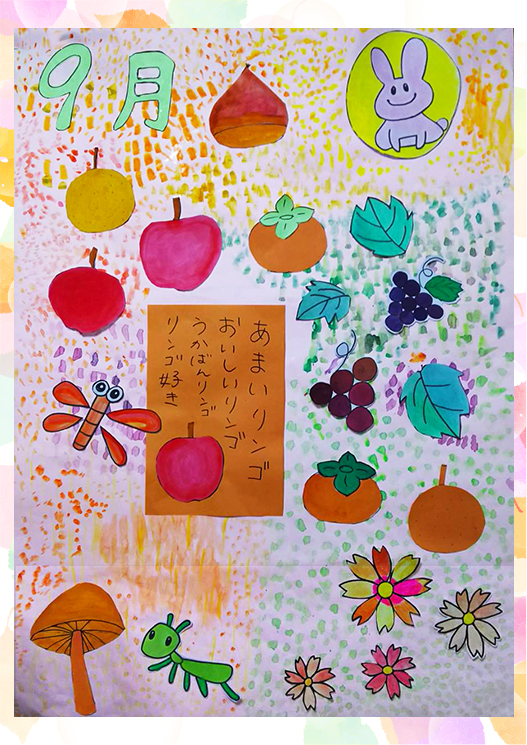 9月
あまいリンゴ
おいしいリンゴ
うかばんリンゴ
リンゴ好き